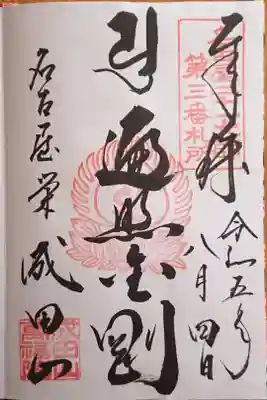 奉拝
第三番札所
令和五年
月四日
遍照金剛
名古屋栄 成田山
成田山萬福院